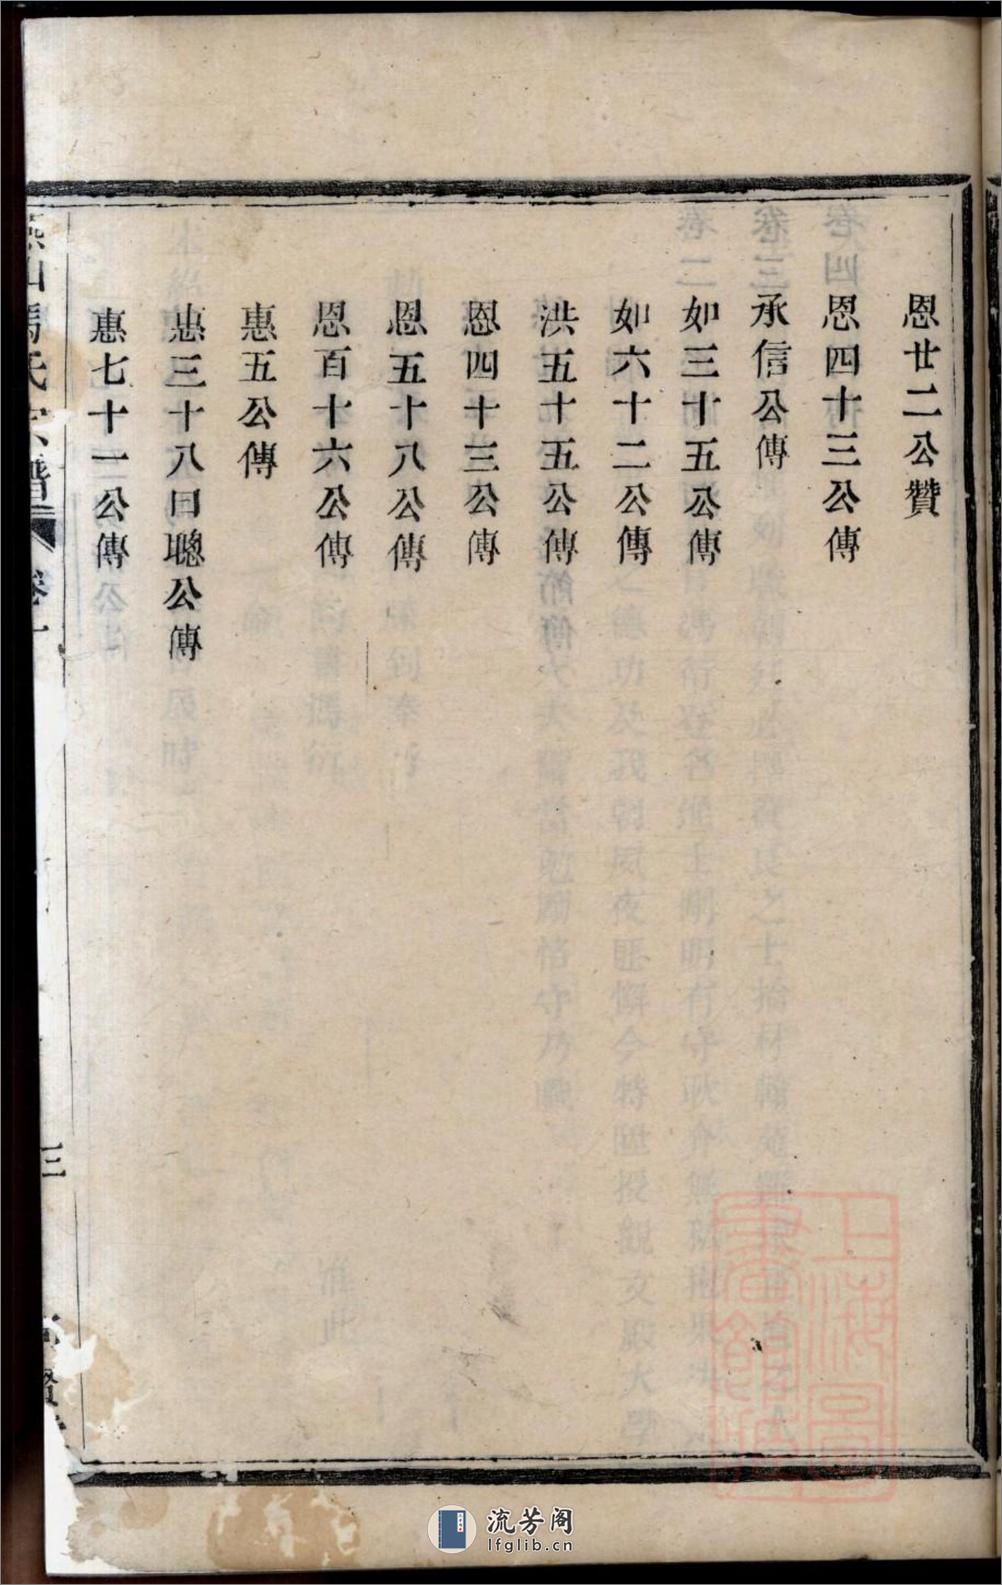 恩廿二公贊
恩四十三公傳
承信公傳
如三十五公傳
如六十二公傳
洪五十五公傳
恩四十三公傳
恩五十八公傳
恩百十六公傳
惠五公傳
惠三十八曰聰公傳
惠七十一公傳
馮氏宗譜
卷一
三
賢
上海圖書館藏
流芳阁
lfglib.cn